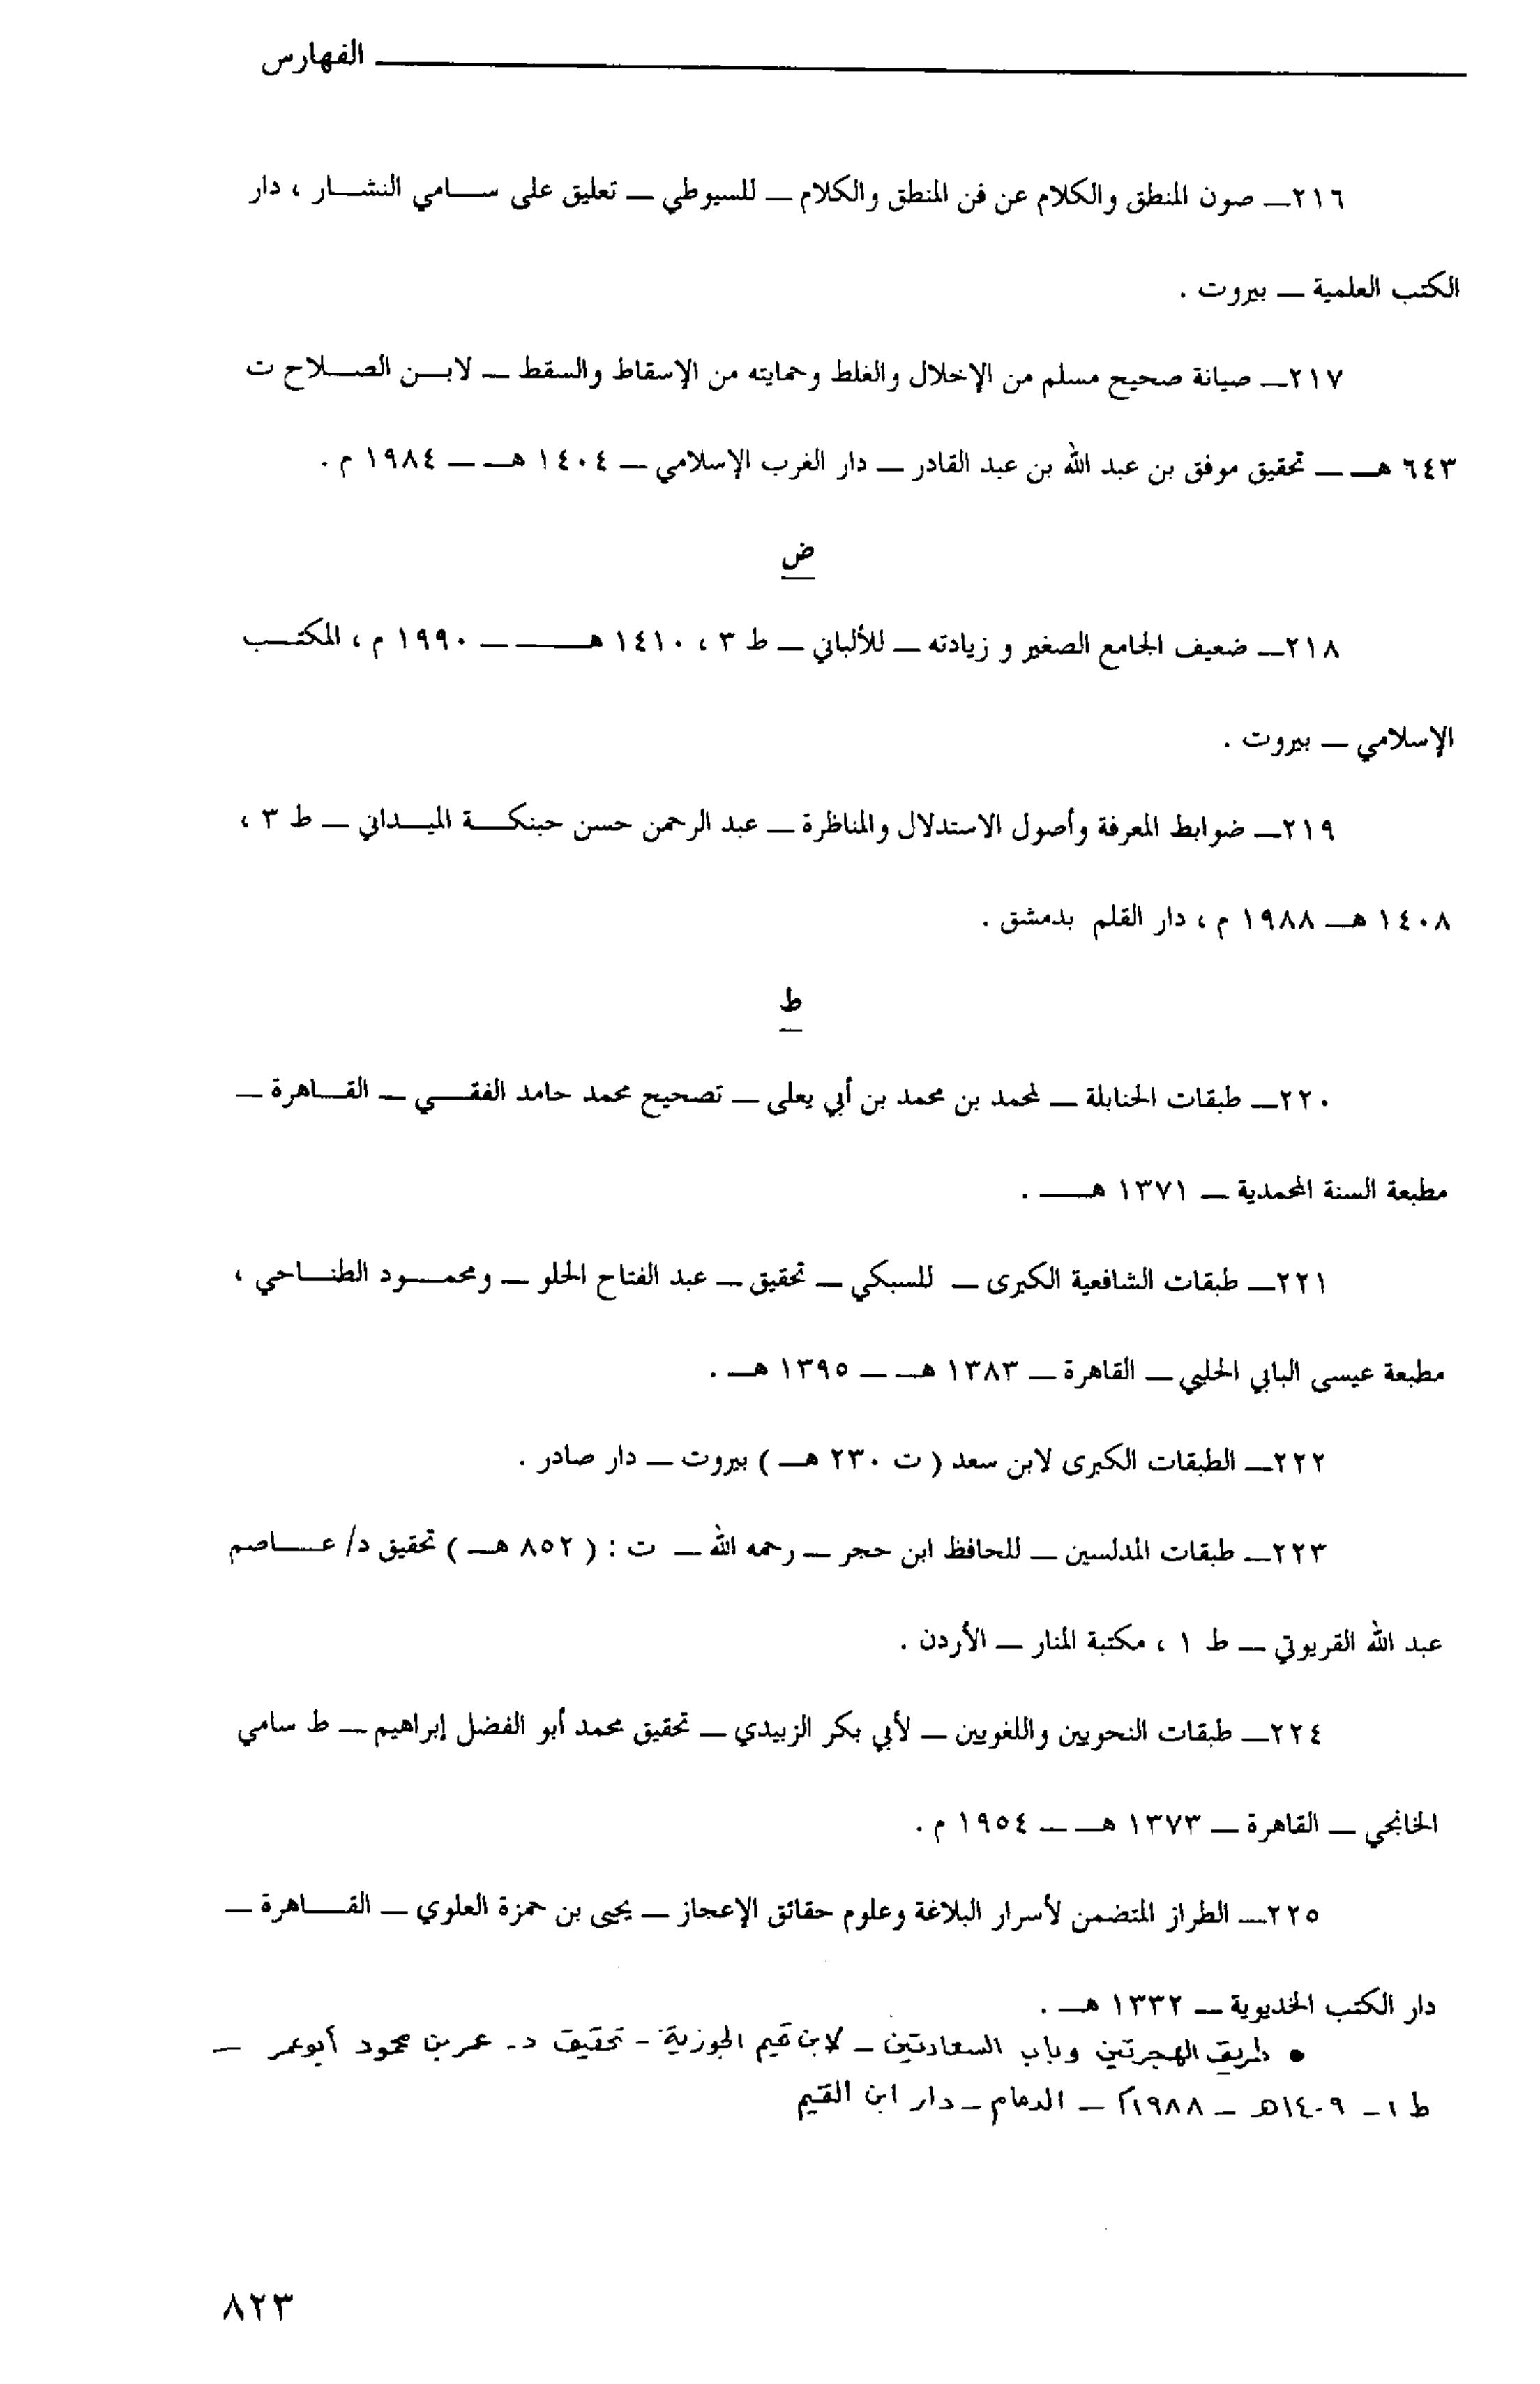 الفهارس
٢١٦ـ صون المنطق والكلام عن فن المنطق والكلام ـ للسيوطي ـ تعليق على سامي النشار ، دار
الكتب العلمية ـ بيروت .
٢١٧ـ صيانة صحيح مسلم من الإخلال والغلط وحمايته من الإسقاط والسقط ـ لابن الصلاح ت
٦٤٣ هـ ـ تحقيق موفق بن عبد الله بن عبد القادر ـ دار الغرب الإسلامي ـ ١٤٠٤ هـ ـ ١٩٨٤ م .
ض
٢١٨ـ ضعيف الجامع الصغير و زيادته ـ للألباني ـ ط ٣ ، ١٤١٠ هـ ـ ١٩٩٠ م ، المكتب
الإسلامي ـ بيروت .
٢١٩ـ ضوابط المعرفة وأصول الاستدلال والمناظرة ـ عبد الرحمن حسن حبنكة الميداني ـ ط ٣ ،
١٤٠٨ هـ ١٩٨٨ م ، دار القلم بدمشق .
ط
٢٢٠ـ طبقات الحنابلة ـ لمحمد بن محمد بن أبي يعلى ـ تصحيح محمد حامد الفقي ـ القاهرة ـ
مطبعة السنة المحمدية ـ ١٣٧١ هـ .
٢٢١ـ طبقات الشافعية الكبرى ـ للسبكي ـ تحقيق ـ عبد الفتاح الحلو ـ ومحمود الطناحي ،
مطبعة عيسى البابي الحلبي ـ القاهرة ـ ١٣٨٣ هـ ـ ١٣٩٥ هـ .
٢٢٢ـ الطبقات الكبرى لابن سعد ( ت ٢٣٠ هـ ) بيروت ـ دار صادر .
٢٢٣ـ طبقات المدلسين ـ للحافظ ابن حجر ـ رحمه الله ـ ت : ( ٨٥٢ هـ ) تحقيق د/ عاصم
عبد الله القريوتي ـ ط ١ ، مكتبة المنار ـ الأردن .
٢٢٤ـ طبقات النحويين واللغويين ـ لأبي بكر الزبيدي ـ تحقيق محمد أبو الفضل إبراهيم ـ ط سامي
الخانجي ـ القاهرة ـ ١٣٧٣ هـ ـ ١٩٥٤ م .
٢٢٥ـ الطراز المتضمن لأسرار البلاغة وعلوم حقائق الإعجاز ـ يحيى بن حمزة العلوي ـ القاهرة ـ
دار الكتب الخديوية ـ ١٣٣٢ هـ .
• طريق الهجرتين وباب السعادتين ـ لابن قيم الجوزية ـ تحقيق د. عمر بن محمود أبو عمر ـ
ط ١ـ ١٤٠٩هـ ـ ١٩٨٨م ـ الدمام ـ دار ابن القيم
٨٢٣